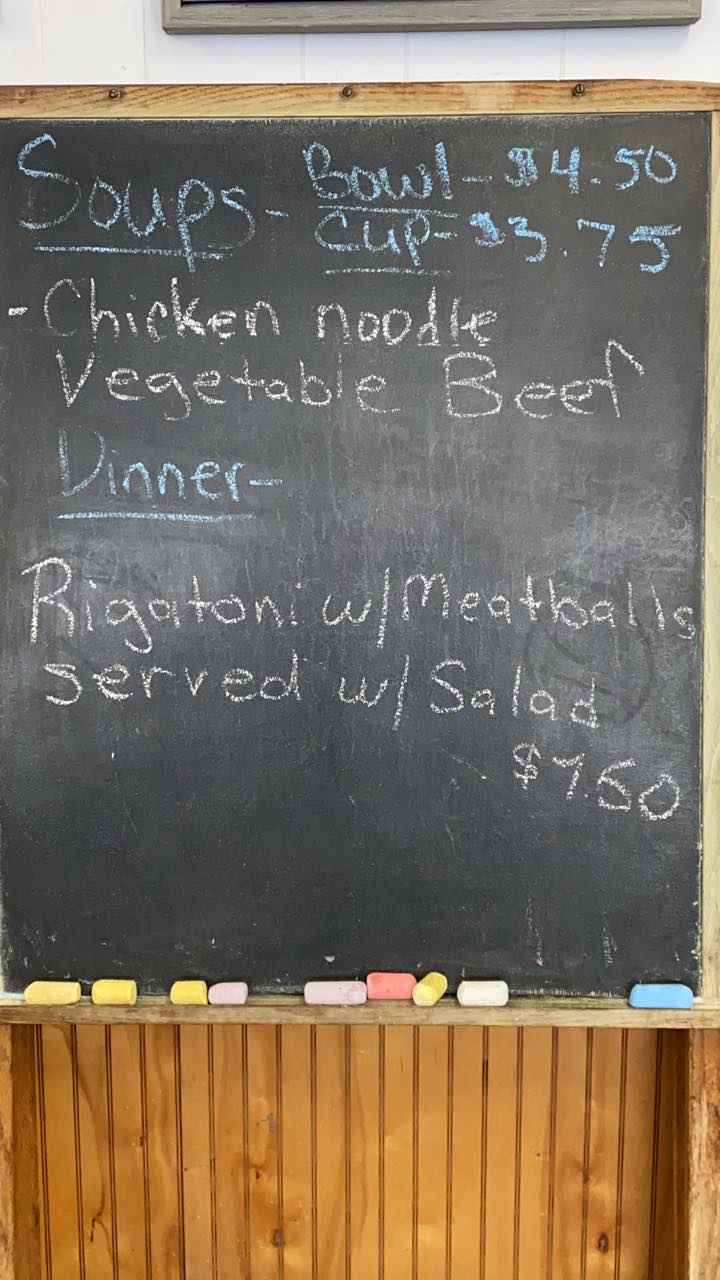 Soups - Bowl - $4.50
Cup - $3.75
- Chicken noodle
Vegetable Beef
Dinner -
Rigatoni w/ Meatballs
served w/ Salad
$7.50